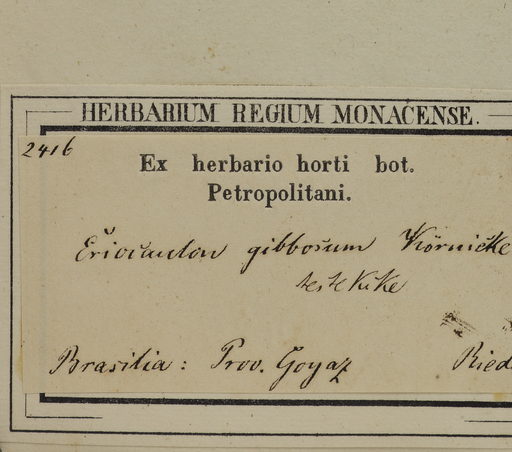 HERBARIUM REGIUM MONACENSE.
2416
Ex herbario horti bot.
Petropolitani.
Eriocaulon gibbosum Körnicke
teste
Brasilia: Prov. Goyaz Ried